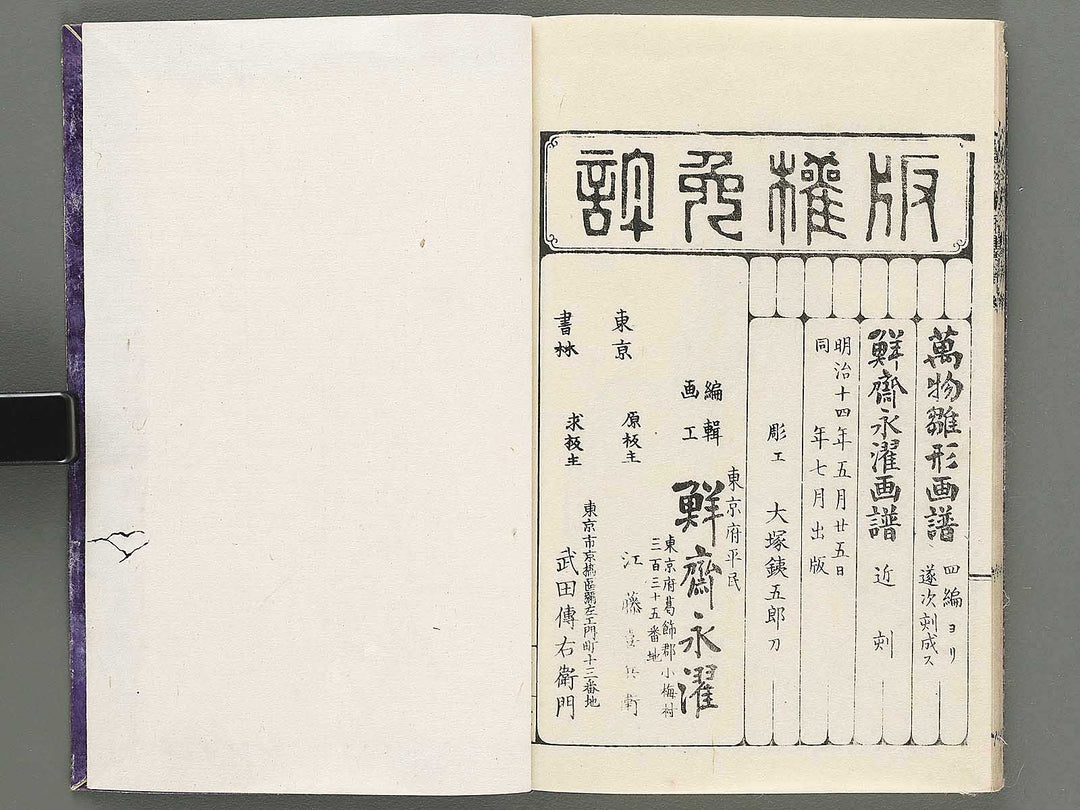 版權免許
萬物雛形画譜 四編ヨリ
遂次刻成ス
鮮齋永濯画譜 近刻
明治十四年五月廿五日
同年七月出版
彫工 大塚銕五郎刀
編輯
画工
東京府平民
鮮齋永濯
東京府葛飾郡小梅村
三百三十五番地
東京
原板主 江藤喜兵衛
書林
求板主
東京市京橋區彌左エ門町十三番地
武田傳右衛門